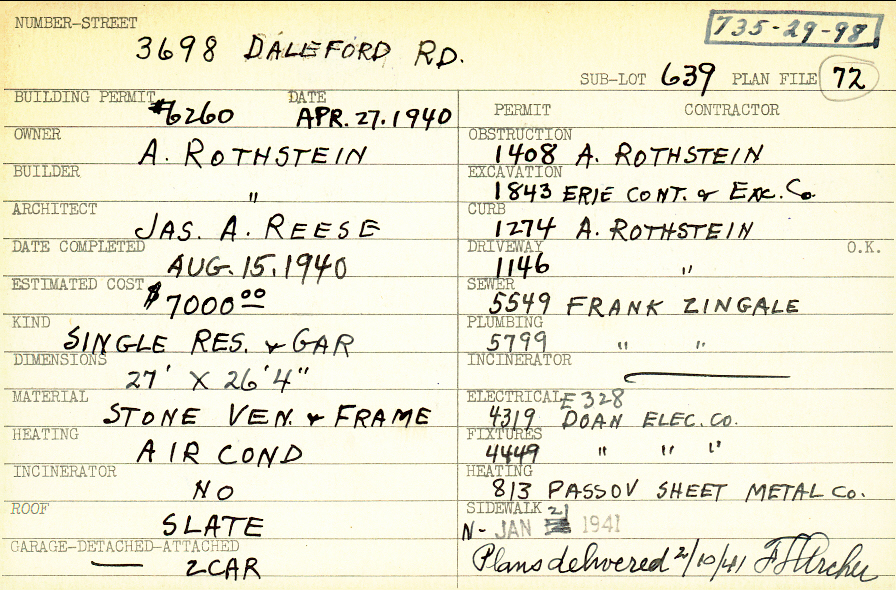 NUMBER-STREET
3698 DALEFORD RD.
735-29-98
SUB-LOT 639 PLAN FILE 72
BUILDING PERMIT DATE
#6260 APR. 27. 1940
OWNER
A. ROTHSTEIN
BUILDER
"
ARCHITECT
JAS. A. REESE
DATE COMPLETED
AUG. 15. 1940
ESTIMATED COST
$7000 00
KIND
SINGLE RES. & GAR
DIMENSIONS
27' X 26'4"
MATERIAL
STONE VEN. & FRAME
HEATING
AIR COND
INCINERATOR
NO
ROOF
SLATE
GARAGE-DETACHED-ATTACHED
2CAR
PERMIT CONTRACTOR
OBSTRUCTION
1408 A. ROTHSTEIN
EXCAVATION
1843 ERIE CONT. & EXC. Co.
CURB
1274 A. ROTHSTEIN
DRIVEWAY O.K.
1146 "
SEWER
5549 FRANK ZINGALE
PLUMBING
5799 " "
INCINERATOR
ELECTRICAL E 328
4319 DOAN ELEC. CO.
FIXTURES
4449 " " "
HEATING
813 PASSOV SHEET METAL Co.
SIDEWALK 21
N- JAN 1941
Plans delivered 2/10/41 Archer